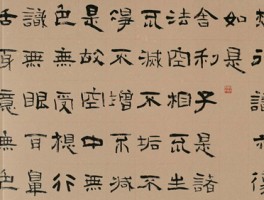 想行識亦復
如是
舍利子是諸
法空相不生
不滅不垢不
淨不增不減
是故空中無
色無受想行
識無眼耳鼻
舌身意無色